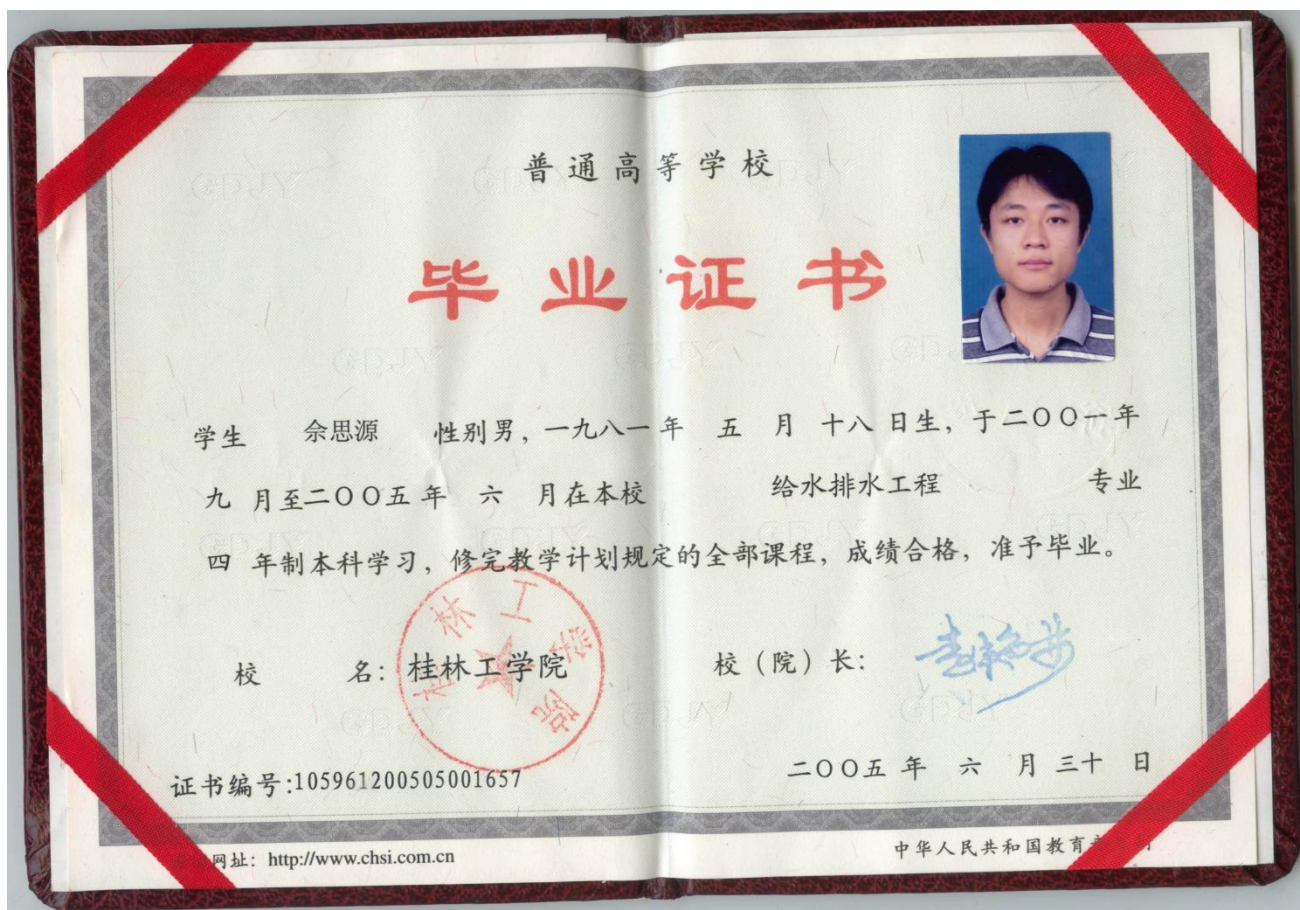 普通高等学校
毕业证书
学生 佘思源 性别男，一九八一年 五 月 十八 日生，于二〇〇一年
九 月至二〇〇五年 六 月在本校 给水排水工程 专业
四 年制本科学习，修完教学计划规定的全部课程，成绩合格，准予毕业。
校 名：桂林工学院 校（院）长：
桂林工学院
二〇〇五 年 六 月 三十 日
证书编号:105961200505001657
网址：http://www.chsi.com.cn
中华人民共和国教育